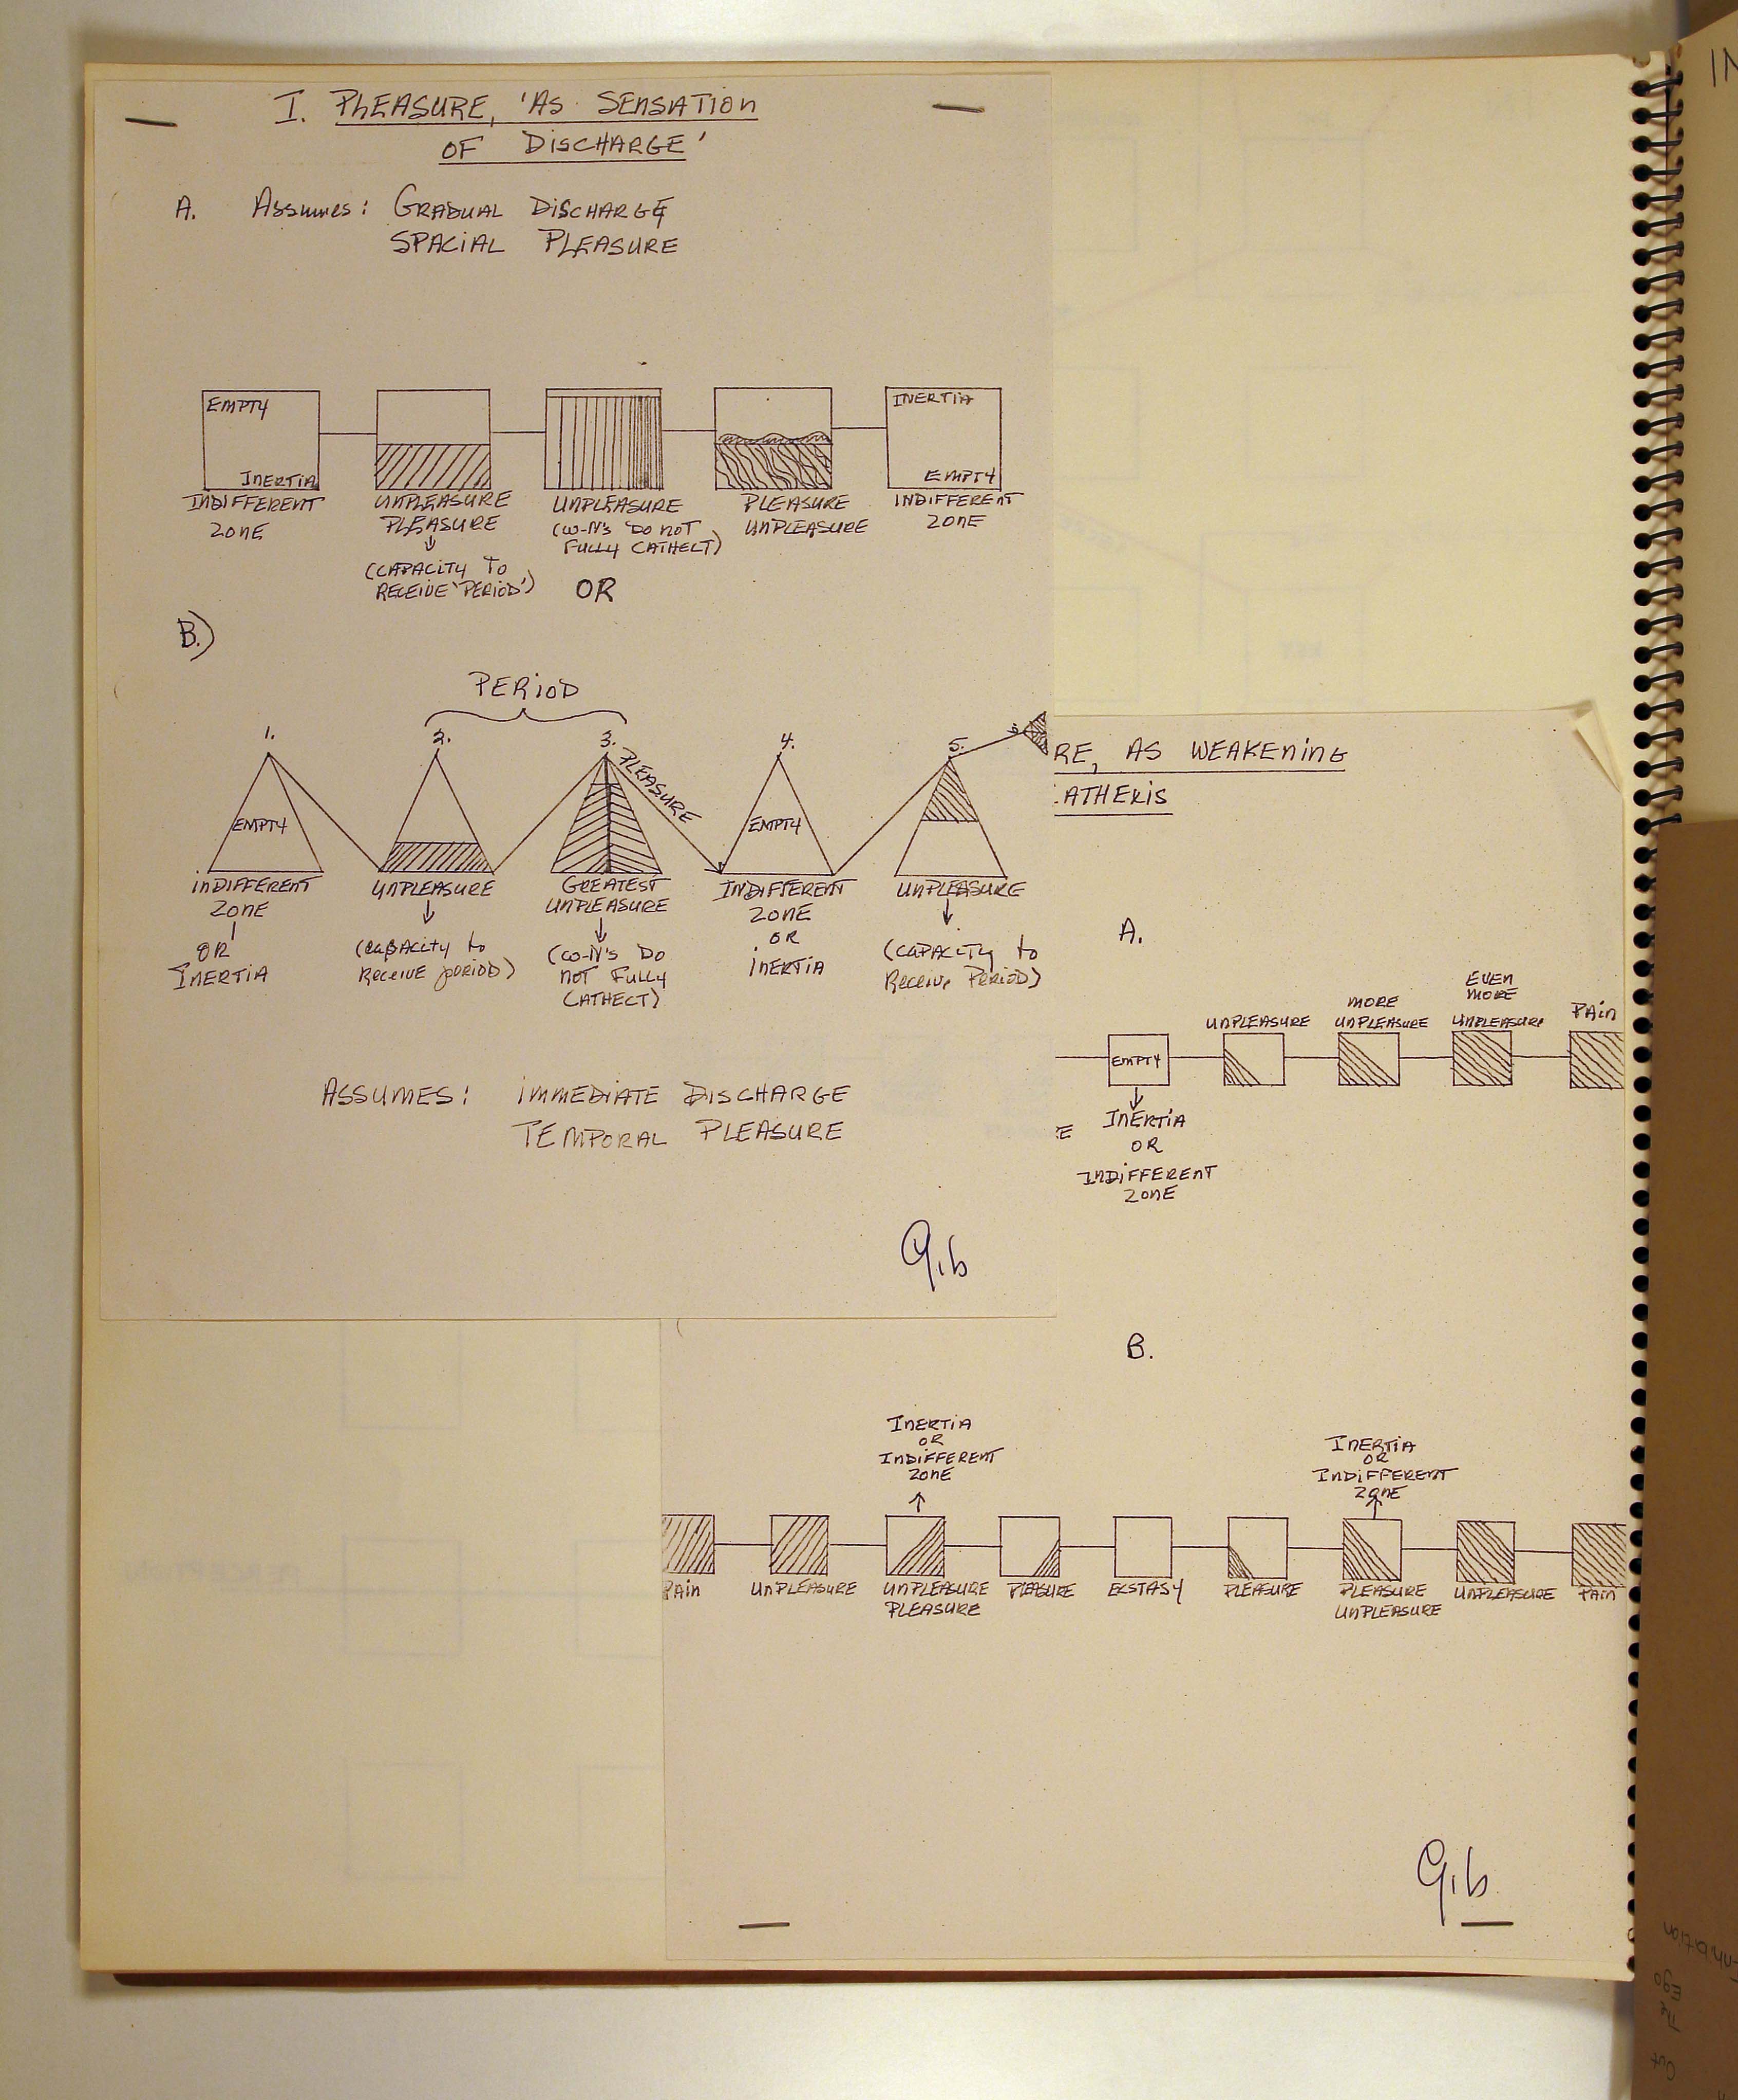 I. PLEASURE, 'AS SENSATION
OF DISCHARGE'
A. ASSUMES: GRADUAL DISCHARGE
SPACIAL PLEASURE
EMPTY
INERTIA
INDIFFERENT
ZONE
UNPLEASURE
PLEASURE
(CAPACITY TO
RECEIVE 'PERIOD')
UNPLEASURE
(W-N's DO NOT
FULLY CATHECT)
PLEASURE
UNPLEASURE
INERTIA
EMPTY
INDIFFERENT
ZONE
OR
B.)
PERIOD
1.
2.
3.
4.
5.
PLEASURE
EMPTY
EMPTY
INDIFFERENT
ZONE
OR
INERTIA
UNPLEASURE
(CAPACITY to
Receive period)
GREATEST
UNPLEASURE
(W-N's DO
NOT FULLY
CATHECT)
INDIFFERENT
ZONE
OR
INERTIA
UNPLEASURE
(CAPACITY to
Receive PERIOD)
ASSUMES: IMMEDIATE DISCHARGE
TEMPORAL PLEASURE
9.b
RE, AS WEAKENING
ATHEXIS
A.
EMPTY
UNPLEASURE
MORE
UNPLEASURE
EVEN
MORE
UNPLEASURE
PAIN
E
INERTIA
OR
INDIFFERENT
ZONE
B.
INERTIA
OR
INDIFFERENT
ZONE
INERTIA
OR
INDIFFERENT
ZONE
PAIN
UNPLEASURE
UNPLEASURE
PLEASURE
PLEASURE
EKSTASY
PLEASURE
PLEASURE
UNPLEASURE
UNPLEASURE
PAIN
9.b
IN
The
Ego